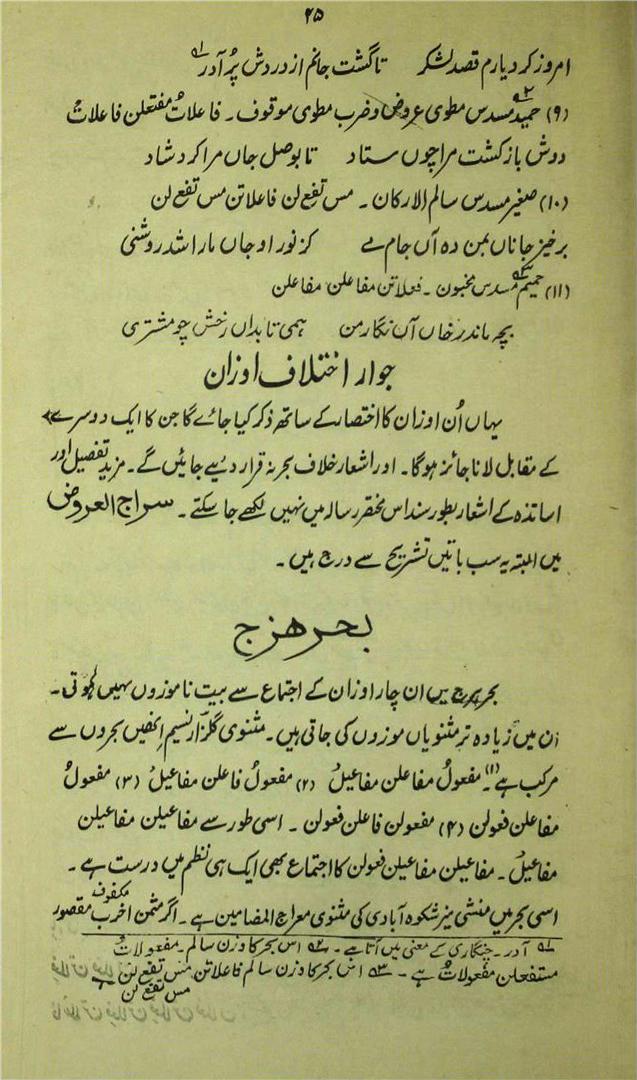 ۴۵
امروز کرد یارم قصد لشکر تا گشت جانم از دردش پُر آدر ؎۱
(۹) حمید ؎۲ مسدس مطوی عروض و ضرب مطوی موقوف ۔ فاعلاتُ مفتعلن فاعلاتُ
دوش باز گشت مرا چوں ستاد تا بوصل جاں مرا کرد شاد
(۱۰) صغیر مسدس سالم الارکان ۔ مس تفع لن فاعلاتن مس تفع لن
برخیز جاناں بمن ده آں جام مے کز نور او جاں مارا شد روشنی
(۱۱) حمیم ؎۳ مسدس مخبون ۔ فعلاتن مفاعلن مفاعلن
بچہ ماند رخاں آں نگار من ہمی تابداں رخش چو مشتری
جواز اختلاف اوزان
یہاں اُن اوزان کا اختصار کے ساتھ ذکر کیا جائے گا جن کا ایک دوسرے
کے مقابل لانا جائز ہوگا ۔ اور اشعار خلاف بحر نہ قرار دیے جائیں گے ۔ مزید تفصیل اور
اساتذہ کے اشعار بطور سند اس مختصر رسالہ میں نہیں لکھے جا سکتے ۔ سراج العروض
میں البتہ یہ سب باتیں تشریح سے درج ہیں ۔
بحر ہزج
بحر ہزج میں ان چار اوزان کے اجتماع سے بیت ناموزوں نہیں ہوتی ۔
ان میں زیادہ تر مثنویاں موزوں کی جاتی ہیں ۔ مثنوی گلزار نسیم انھیں بحروں سے
مرکب ہے ۔ (۱) مفعولُ مفاعلن مفاعیلُ (۲) مفعولُ فاعلن مفاعیلُ (۳) مفعولُ
مفاعلن فعولن (۴) مفعولن فاعلن فعولن ۔ اسی طور سے مفاعیلن مفاعیلن
مفاعیلُ ۔ مفاعیلن مفاعیلن فعولن کا اجتماع بھی ایک ہی نظم میں درست ہے ۔
اسی بحر میں منشی منیر شکوہ آبادی کی مثنوی معراج المضامین ہے ۔ اگر مثمن اخرب مکفوف مقصور
؎۱ آدر ۔ چنگاری کے معنی میں آتا ہے ۔ ؎۲ اس بحر کا وزن سالم ۔ مفعولاتُ
مستفعلن مفعولاتُ ہے ۔ ؎۳ اس بحر کا وزن سالم فاعلاتن مس تفع لن
مس تفع لن ہے